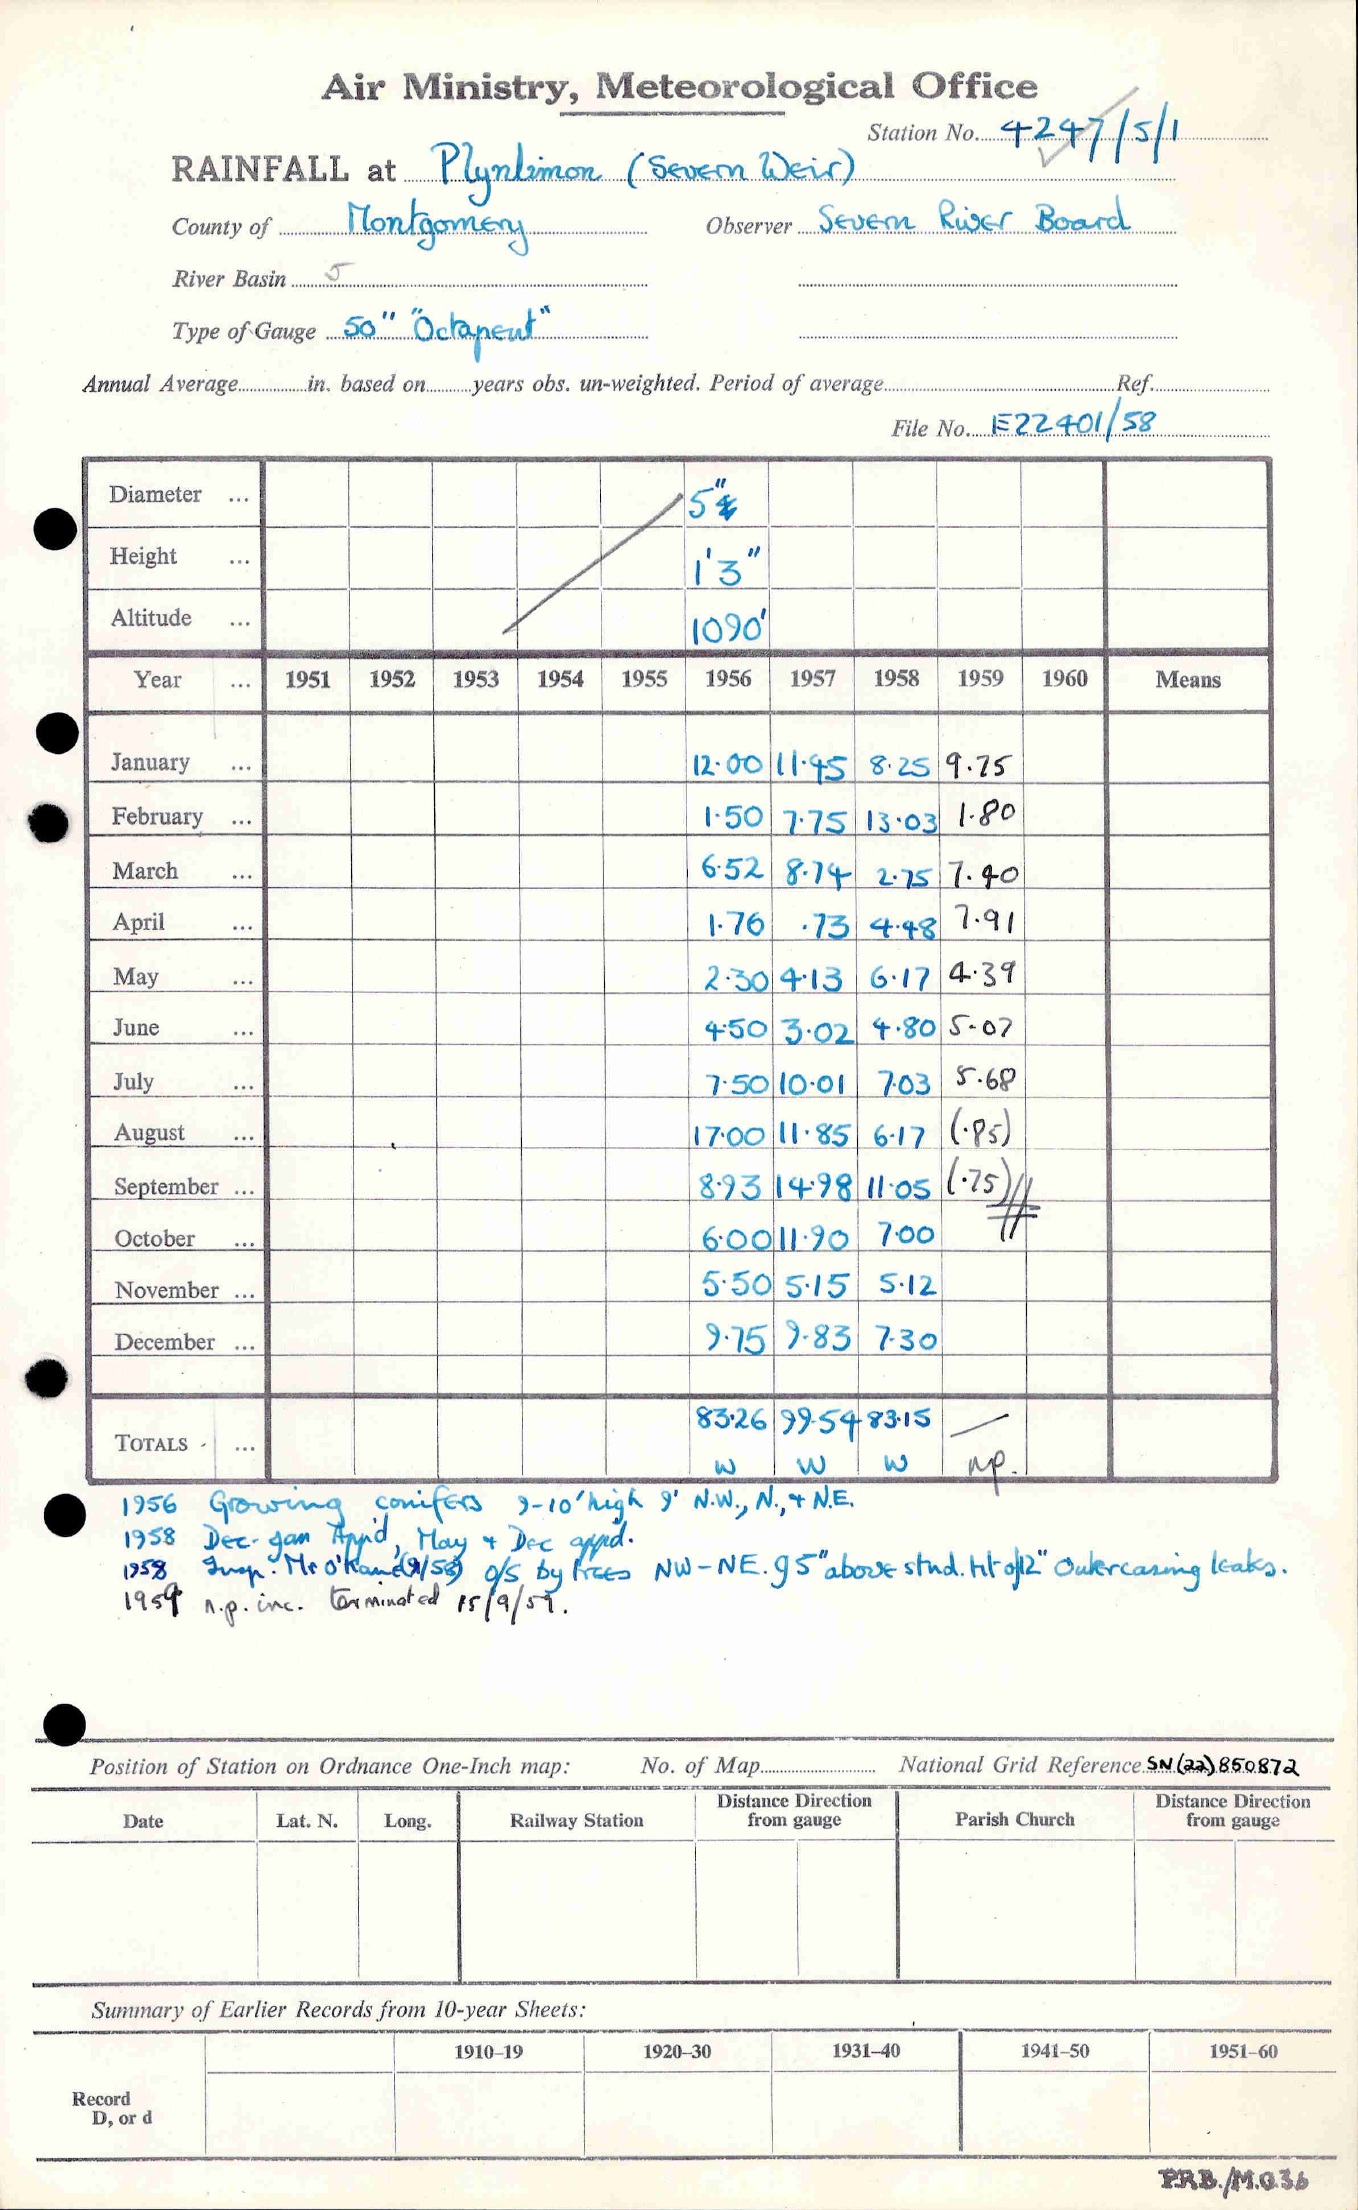 Air Ministry, Meteorological Office
Station No. 4247/5/1
RAINFALL at Plynlimon (Severn Weir)
County of Montgomery Observer Severn River Board
River Basin 5
Type of Gauge 50" "Octapent"
Annual Average in. based on years obs. un-weighted. Period of average Ref.
File No. E22401/58
Diameter ... 5"
Height ... 1'3"
Altitude ... 1090'
Year ... 1951 1952 1953 1954 1955 1956 1957 1958 1959 1960 Means
January ... 12.00 11.45 8.25 9.75
February ... 1.50 7.75 13.03 1.80
March ... 6.52 8.74 2.75 7.40
April ... 1.76 .73 4.48 7.91
May ... 2.30 4.13 6.17 4.39
June ... 4.50 3.02 4.80 5.07
July ... 7.50 10.01 7.03 5.68
August ... 17.00 11.85 6.17 (.85)
September ... 8.93 14.98 11.05 (.75)
October ... 6.00 11.90 7.00
November ... 5.50 5.15 5.12
December ... 9.75 9.83 7.30
TOTALS ... 83.26 99.54 83.15 —
W W W np.
1956 Growing conifers 9-10' high 9' N.W., N., & N.E.
1958 Dec. Jan App'd, May & Dec appd.
1958 Insp. Mr O'Kane (9/58) o/s by trees NW-NE. g 5" above stnd. tilt of 12" Outercasing leaks.
1959 n.p. inc. terminated 15/9/59.
Position of Station on Ordnance One-Inch map: No. of Map National Grid Reference SN(22)850872
Date Lat. N. Long. Railway Station Distance Direction from gauge Parish Church Distance Direction from gauge
Summary of Earlier Records from 10-year Sheets:
1910–19 1920–30 1931–40 1941–50 1951–60
Record
D, or d
P.R.B./M.O.36